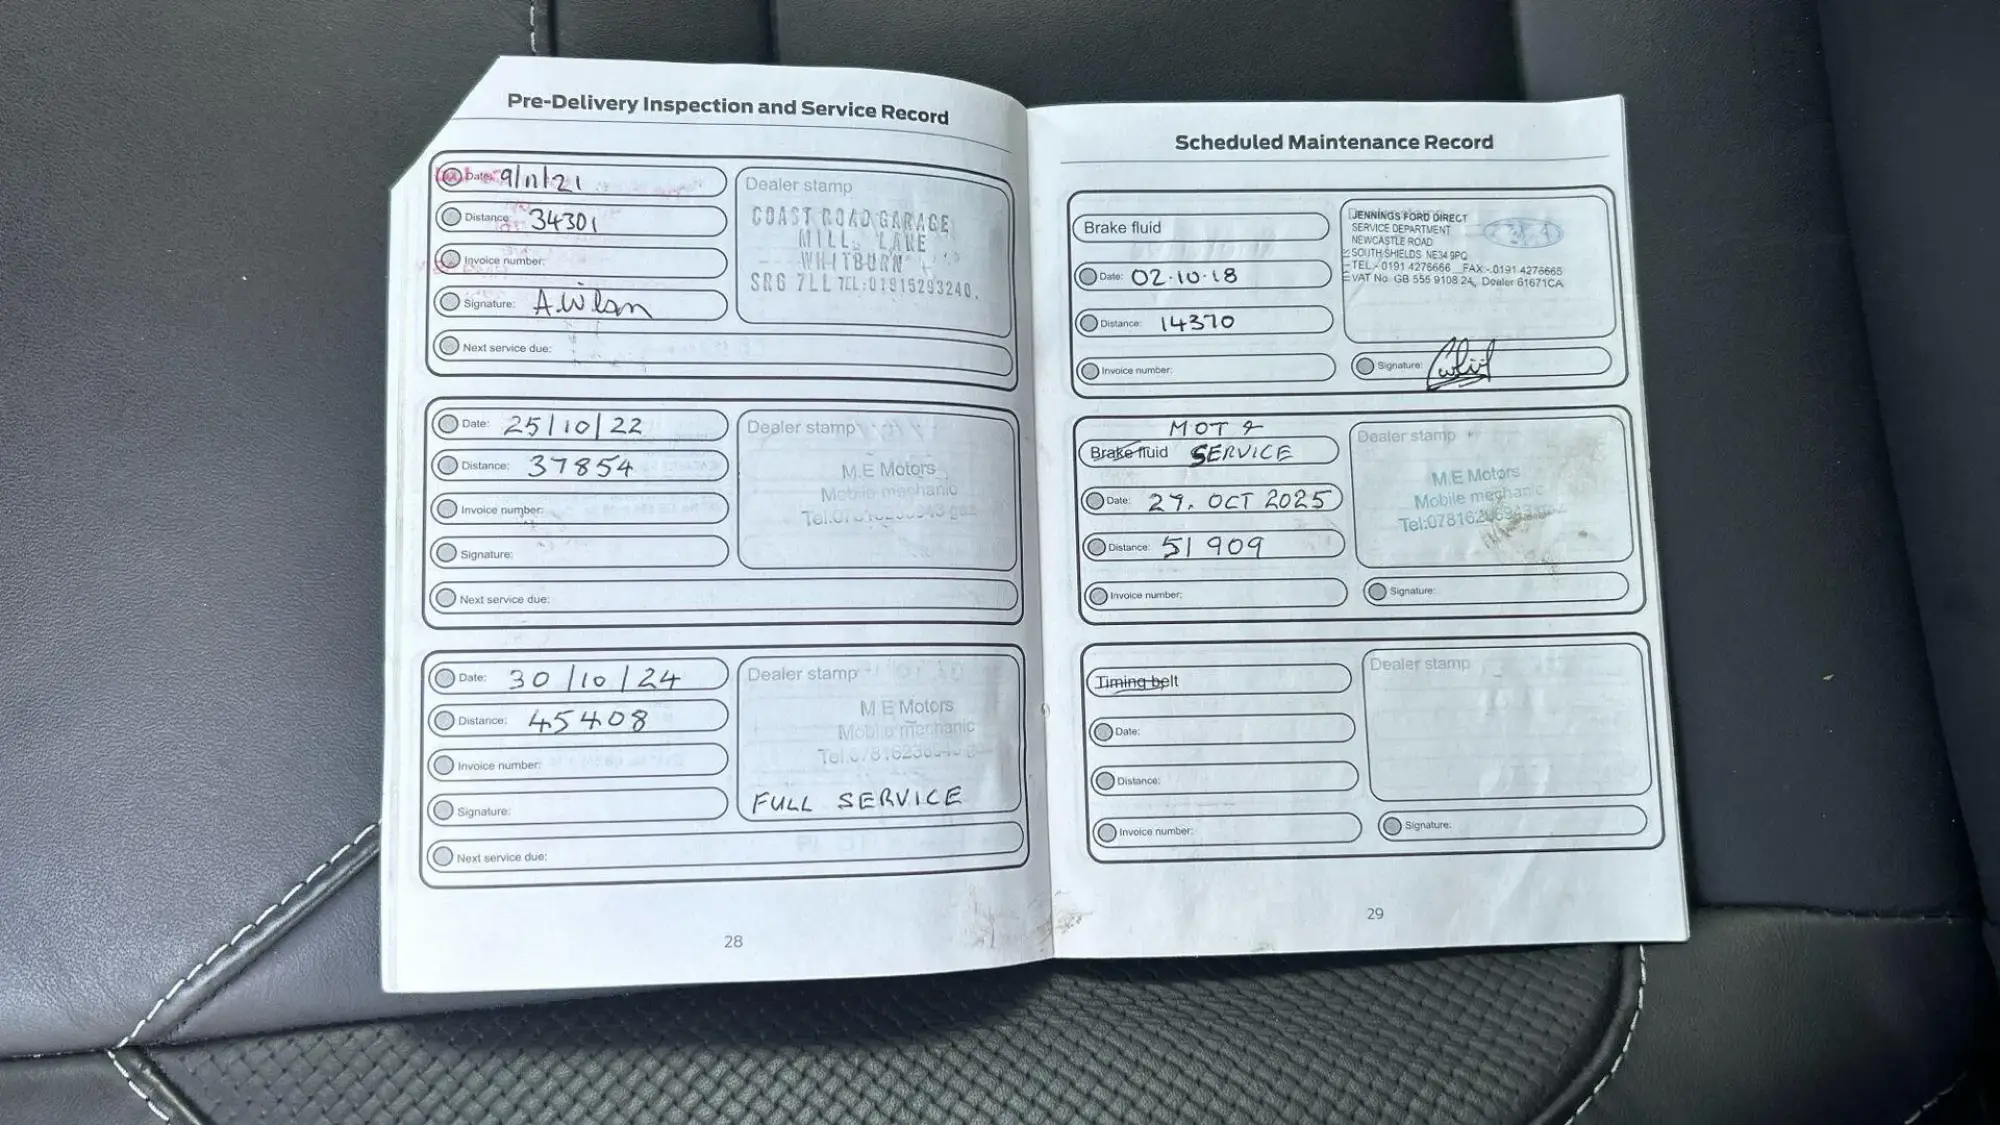 Pre-Delivery Inspection and Service Record
Date: 9/11/21
Distance: 34301
Invoice number:
Signature: A.Wilson
Next service due:
Dealer stamp
COAST ROAD GARAGE
MILL LANE
WHITBURN
SR6 7LL TEL:01915293240.
Date: 25/10/22
Distance: 37854
Invoice number:
Signature:
Next service due:
Dealer stamp
M.E Motors
Mobile mechanic
Date: 30/10/24
Distance: 45408
Invoice number:
Signature:
Next service due:
Dealer stamp
M E Motors
Mobile mechanic
FULL SERVICE
28
Scheduled Maintenance Record
Brake fluid
Date: 02·10·18
Distance: 14370
Invoice number:
JENNINGS FORD DIRECT
SERVICE DEPARTMENT
NEWCASTLE ROAD
SOUTH SHIELDS NE34 9PQ
TEL:- 0191 4276666 FAX:- 0191 4276665
VAT No GB 555 9108 24, Dealer 61671CA
Signature:
MOT &
Brake fluid SERVICE
Date: 29. OCT 2025
Distance: 51909
Invoice number:
Dealer stamp
M.E Motors
Mobile mechanic
Signature:
Timing belt
Date:
Distance:
Invoice number:
Dealer stamp
Signature:
29